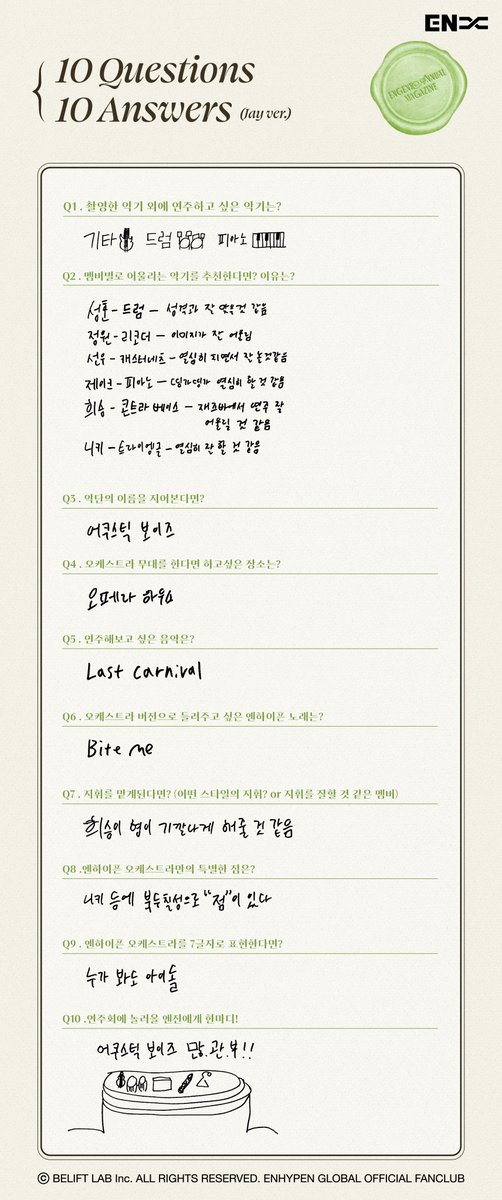 EN
10 Questions
10 Answers (Jay ver.)
ENGENE ANNUAL
MAGAZINE
Q1 . 촬영한 악기 외에 연주하고 싶은 악기는?
기타 드럼 피아노
Q2 . 멤버별로 어울리는 악기를 추천한다면? 이유는?
성훈 - 드럼 - 성격과 잘 맞을것 같음
정원 - 리코더 - 이미지가 잘 어울림
선우 - 캐스터네츠 - 열심히 치면서 잘 놀것같음
제이크 - 피아노 - 딩가딩가 열심히 할 것 같음
희승 - 콘트라 베이스 - 재즈바에서 연주 잘
어울릴 것 같음
니키 - 트라이앵글 - 열심히 잘 할 것 같음
Q3 . 악단의 이름을 지어본다면?
어쿠스틱 보이즈
Q4 . 오케스트라 무대를 한다면 하고싶은 장소는?
오페라 하우스
Q5 . 연주해보고 싶은 음악은?
Last carnival
Q6 . 오케스트라 버전으로 들려주고 싶은 엔하이픈 노래는?
Bite me
Q7 . 지휘를 맡게된다면? (어떤 스타일의 지휘? or 지휘를 잘할 것 같은 멤버)
희승이 형이 기깔나게 해줄 것 같음
Q8 .엔하이픈 오케스트라만의 특별한 점은?
니키 등에 북두칠성으로 "점"이 있다
Q9 . 엔하이픈 오케스트라를 7글자로 표현한다면?
누가 봐도 아이돌
Q10 .연주회에 놀러올 엔진에게 한마디!
어쿠스틱 보이즈 많.관.부!!
© BELIFT LAB Inc. ALL RIGHTS RESERVED. ENHYPEN GLOBAL OFFICIAL FANCLUB